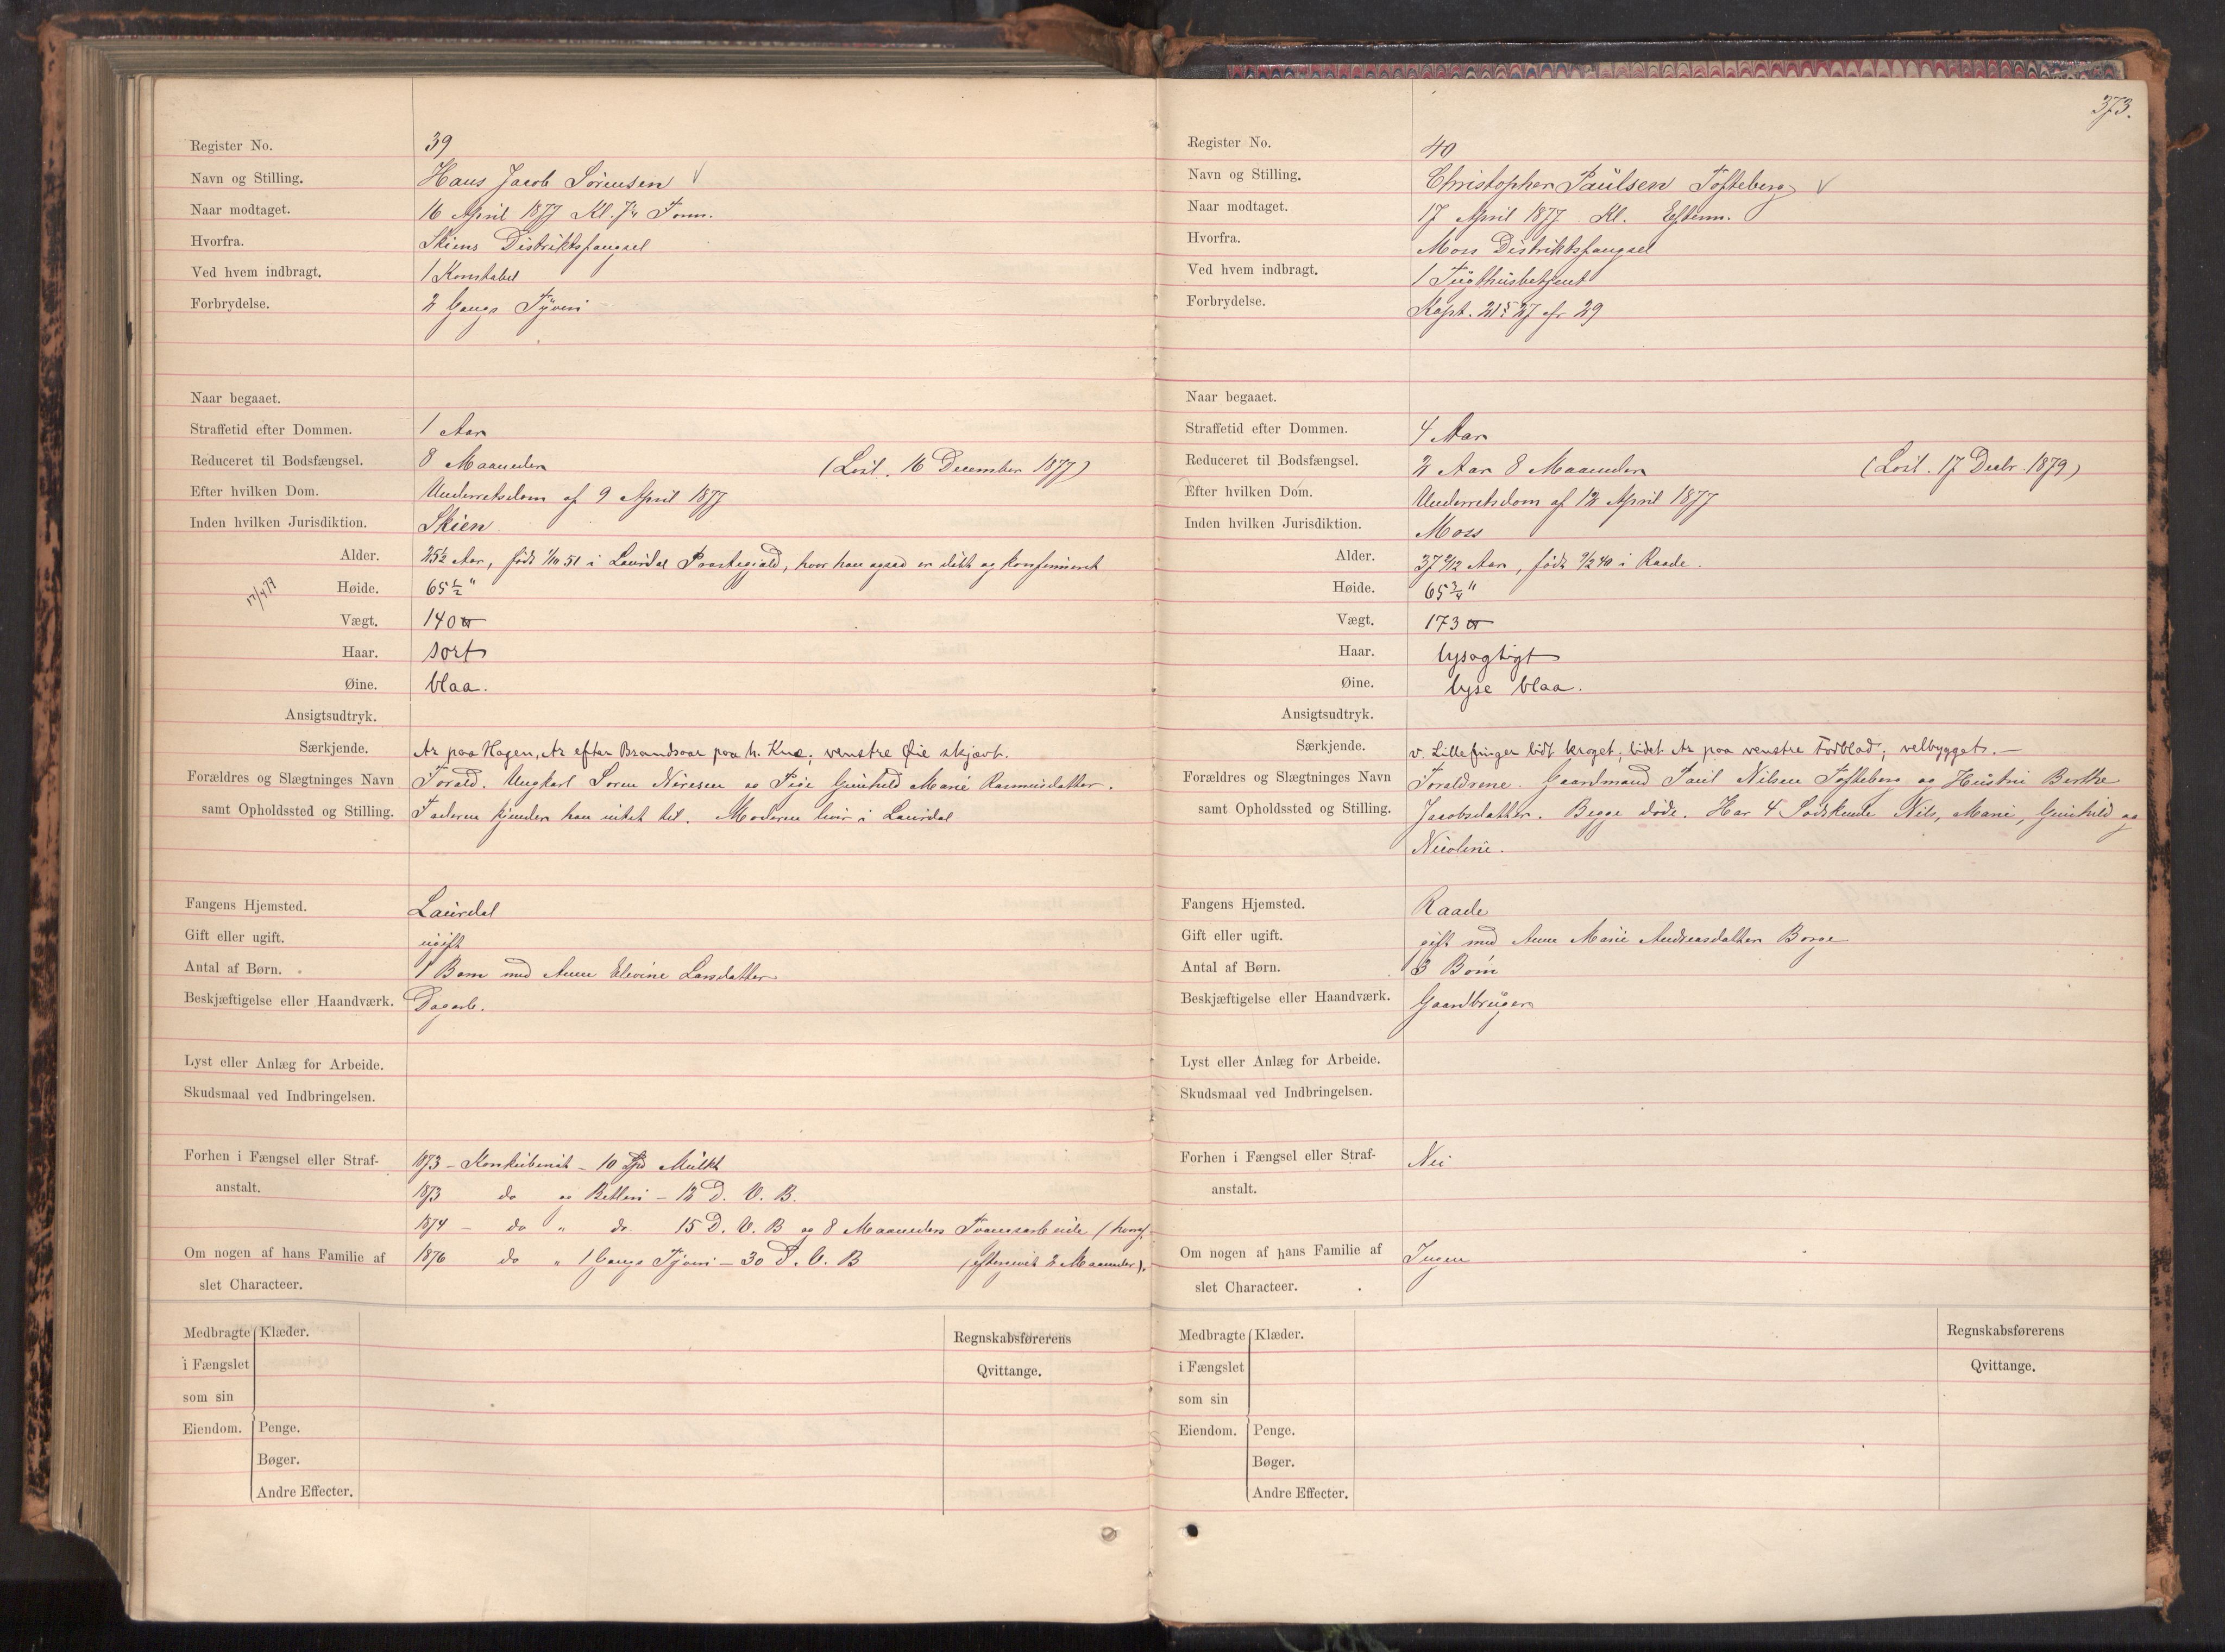 Register No. 39
Navn og Stilling. Hans Jacob Sörensen
Naar modtaget. 16 April 1877 Kl. 7½ Form.
Hvorfra. Skiens Distriktsfængsel
Ved hvem indbragt. 1 Konstabel
Forbrydelse. 2 Gangs Tyveri
Naar begaaet.
Straffetid efter Dommen. 1 Aar
Reduceret til Bodsfængsel. 8 Maaneder (Løsl. 16 December 1877)
Efter hvilken Dom. Underretsdom af 9 April 1877
Inden hvilken Jurisdiktion. Skien
Alder. 25½ Aar, født 1/10 51 i Laurdal Præstegjæld, hvor han ogsaa er døbt og konfirmeret
17/4 77 Høide. 65½"
Vægt. 140 ℔
Haar. sort
Øine. blaa.
Ansigtsudtryk.
Særkjende. Ar paa Hagen, Ar efter Brandsaar paa h. Knæ; venstre Øie skjævt.
Forældres og Slægtninges Navn Foræld. Ungkarl Sören Nirisen og Pige Gunhild Marie Rasmusdatter.
samt Opholdssted og Stilling. Faderen kjender han intet til. Moderen lever i Laurdal
Fangens Hjemsted. Laurdal
Gift eller ugift. ugift
Antal af Børn. 1 Barn med Anne Elevine Larsdatter
Beskjæftigelse eller Haandværk. Dagarb.
Lyst eller Anlæg for Arbeide.
Skudsmaal ved Indbringelsen.
Forhen i Fængsel eller Straf- 1873 – Konkubinat – 10 Spd Mulkt
anstalt. 1873 do og Betleri – 12 D. V. B.
1874 – do " do 15 D. V. B og 8 Maaneders Tvangsarbeide (hvoraf
Om nogen af hans Familie af 1876 do " 1 Gangs Tyveri – 30 D. V. B (eftergivet 2 Maaneder).
slet Characteer.
Medbragte Klæder. Regnskabsførerens
i Fængslet Qvittange.
som sin
Eiendom. Penge.
Bøger.
Andre Effecter.
373.
Register No. 40
Navn og Stilling. Christopher Paulsen Tofteberg
Naar modtaget. 17 April 1877 Kl. Efterm.
Hvorfra. Moss Distriktsfængsel
Ved hvem indbragt. 1 Tugthusbetjent
Forbrydelse. Kapt. 21 § 27 cfr 29
Naar begaaet.
Straffetid efter Dommen. 4 Aar
Reduceret til Bodsfængsel. 2 Aar 8 Maaneder (Løsl. 17 Decbr. 1879)
Efter hvilken Dom. Underretsdom af 12 April 1877
Inden hvilken Jurisdiktion. Moss
Alder. 37 2/12 Aar, født 9/2 40 i Raade.
Høide. 65¾"
Vægt. 173 ℔
Haar. lysagtigt
Øine. lyse blaa.
Ansigtsudtryk.
Særkjende. v. Lillefinger lidt kroget; lidet Ar paa venstre Fodblad; velbygget. –
Forældres og Slægtninges Navn Forældrene Gaardmand Paul Nilsen Tofteberg og Hustru Berthe
samt Opholdssted og Stilling. Jacobsdatter. Begge døde. Har 4 Sødskende Nils, Marie, Gunhild og
Nicoline.
Fangens Hjemsted. Raade
Gift eller ugift. gift med Anne Marie Andreasdatter Borge
Antal af Børn. 3 Børn
Beskjæftigelse eller Haandværk. Gaardbruger
Lyst eller Anlæg for Arbeide.
Skudsmaal ved Indbringelsen.
Forhen i Fængsel eller Straf- Nei
anstalt.
Om nogen af hans Familie af Ingen
slet Characteer.
Medbragte Klæder. Regnskabsførerens
i Fængslet Qvittange.
som sin
Eiendom. Penge.
Bøger.
Andre Effecter.